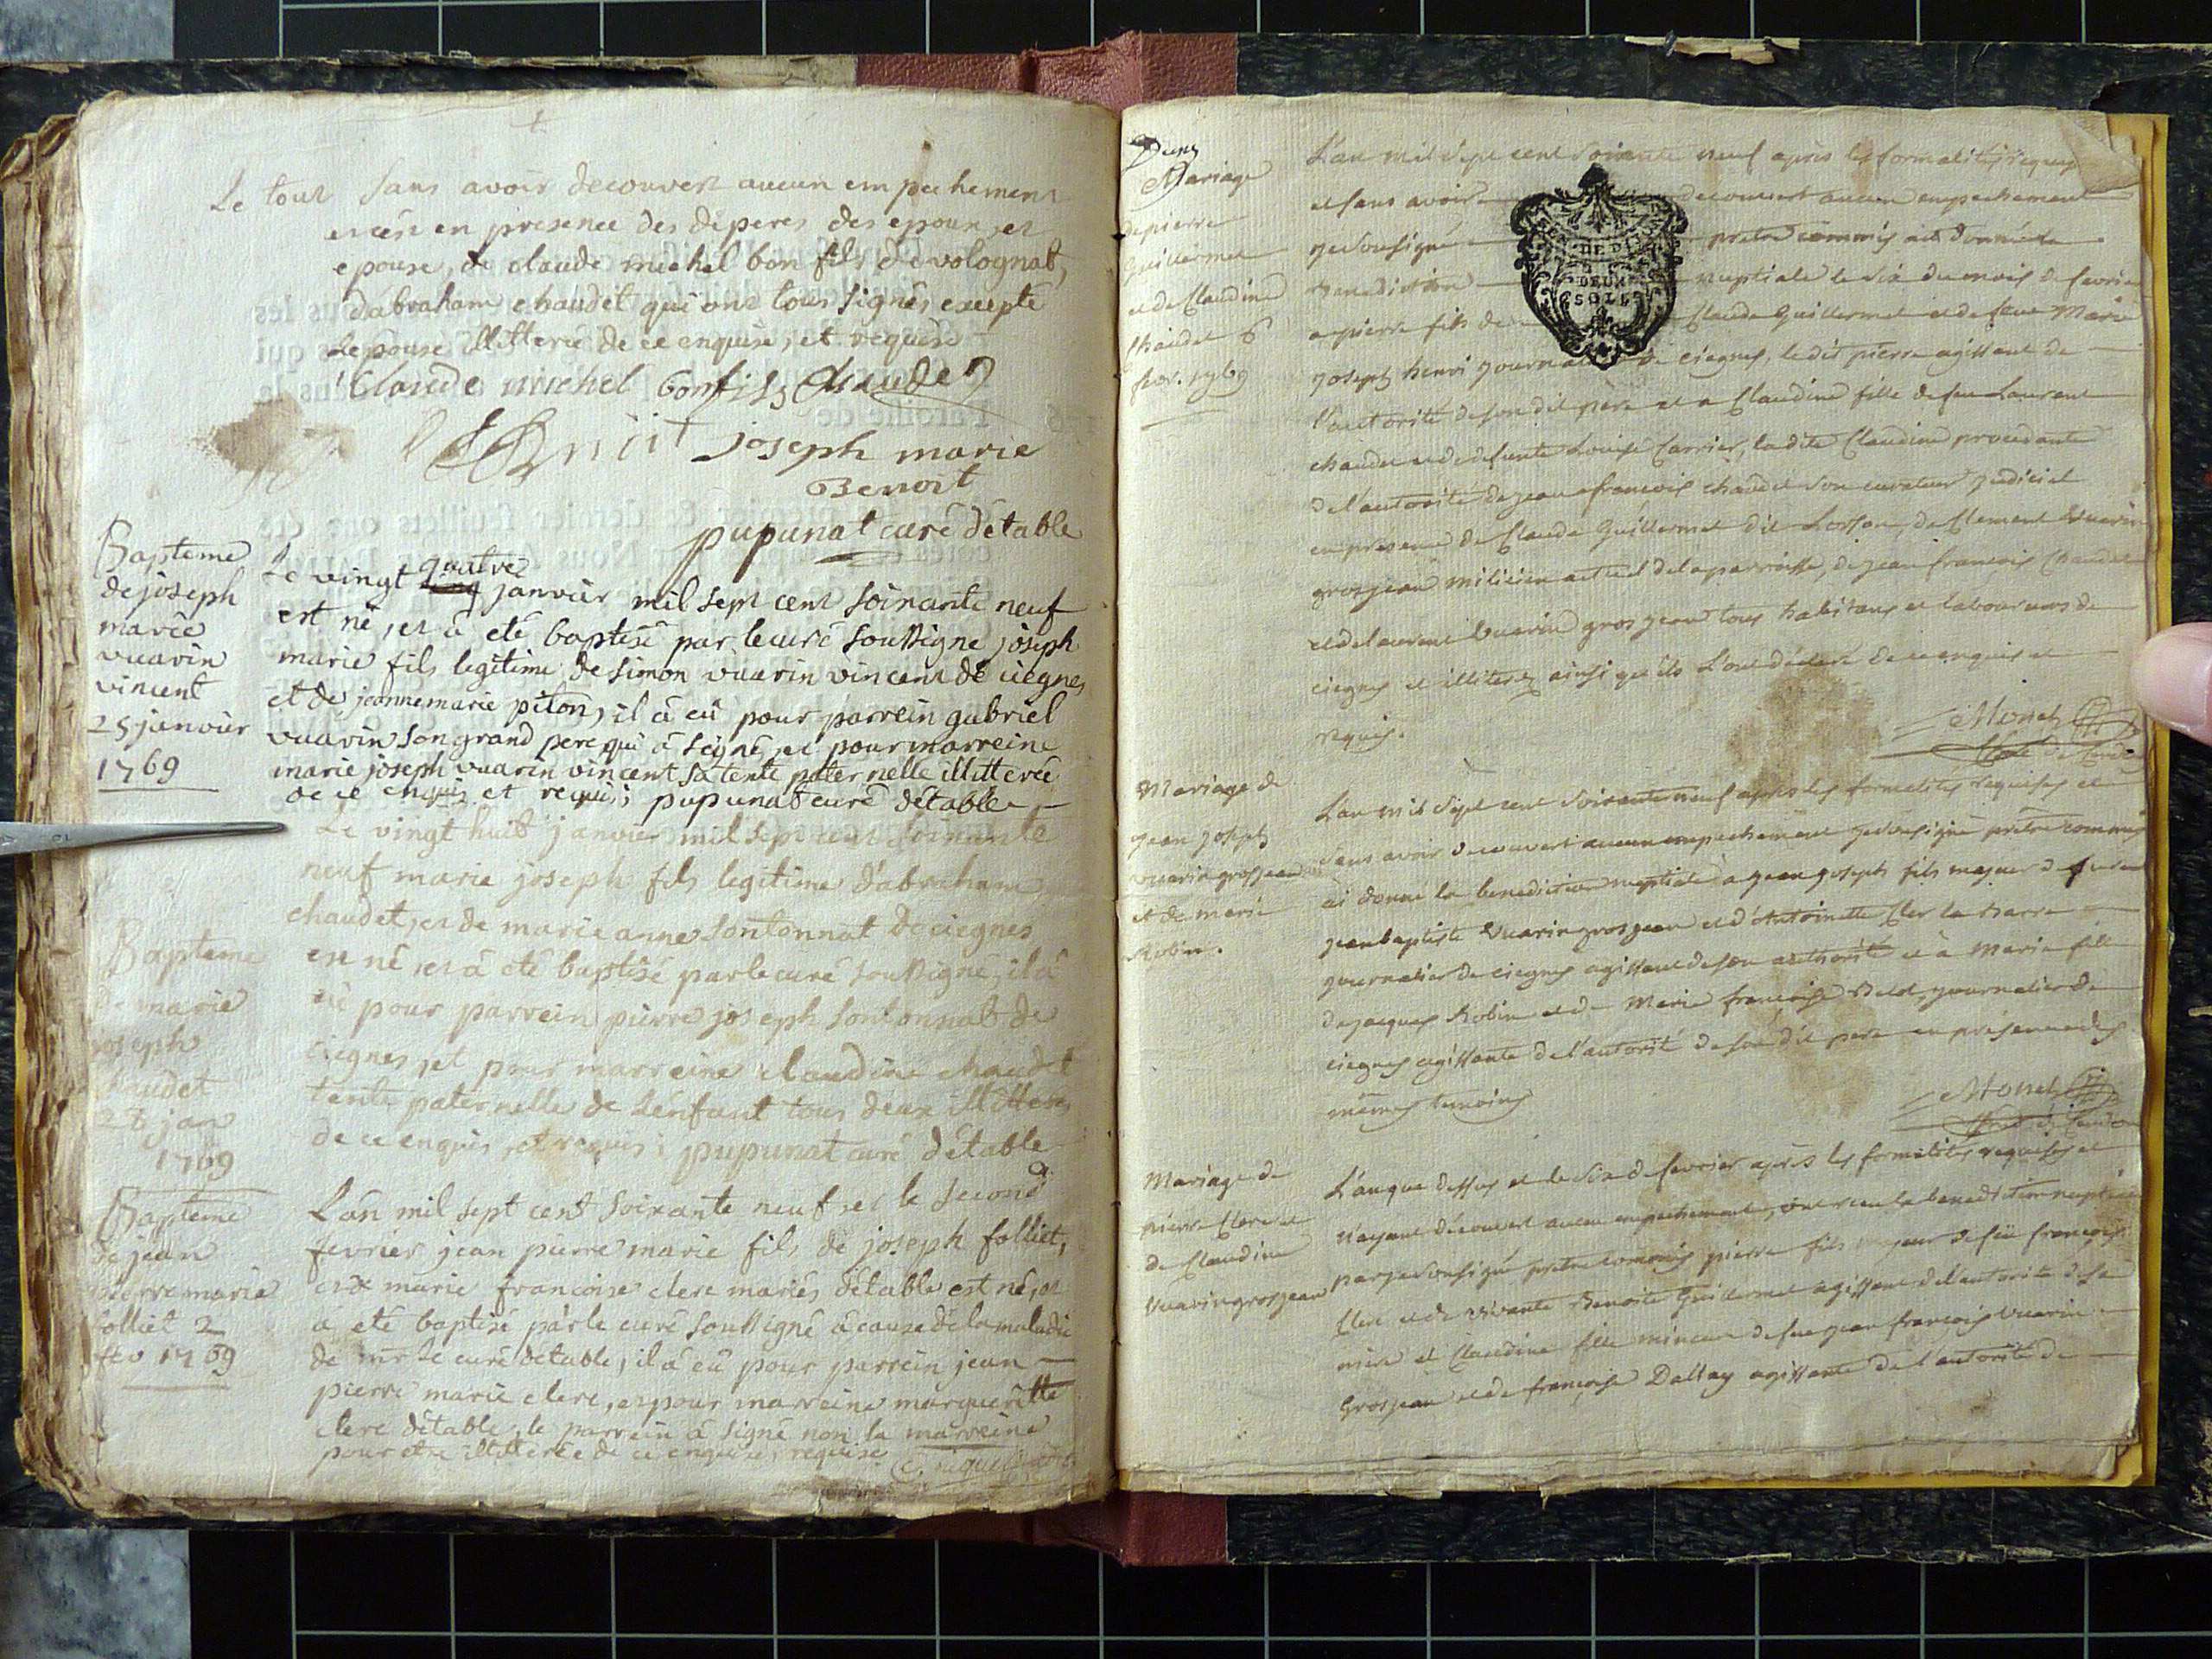 Le tout sans avoir decouvert aucun empechement
et ces en presence des dé peres des epoux, et
epouse, de claude michel bon fils de volognat,
d'abraham chaudet qui ont tous signés excepté
Lepouse illitteré de ce enquise, et requise
Claude michel bonfils chaudet
Benoit joseph marie
Benoit
pupunat curé détable
Bapteme
de joseph
marie
vuarin
vincent
25 janvier
1769
Le vingt quatre cinq janvier mil sept cent soixante neuf
est né, et à eté baptisé par le curé soussigne joseph
marie fils legitime de simon vuarin vincent de ciegnes
et de jeanne marie piton, il à eû pour parrein gabriel
vuarin son grand pere qui à signé, et pour marreine
marie joseph vuarin vincent sa tente paternelle illitterée
de ce enquis et requis; pupunat curé détable
Bapteme
de marie
joseph
chaudet
28 jan
1769
Le vingt huit janvier mil sept cent soixante
neuf marie joseph fils legitime d'abraham
chaudet, et de marie anne sontonnat de ciegnes
est né, et à eté baptisé par le curé soussigné, il à
eû pour parrein pierre joseph sontonnat de
ciegnes, et pour marreine claudine chaudet
tente paternelle de lenfant tous deux illitterés
de ce enquis, et requis; pupunat curé détable
Bapteme
de jean
pierre marie
folliet 2
fev 1769
L'an mil sept cent soixante neuf, et le second
fevrier jean pierre marie fils de joseph folliet,
et de marie francoise clerc mariés détable est né, et
à eté baptisé par le curé soussigné à cause de la maladie
de mr le curé détable, il à eû pour parrein jean
pierre marie clerc, et pour marreine margueritte
clerc détable, le parrein à signé non la marreine
pour etre illitterée de ce enquise, requise
Mariage
de pierre
Guillermet
et de Claudine
Chaudet 6
fevr. 1769
L'an mil sept cent soixante neuf après les formalités requises
et sans avoir decouvert aucun empechement
je soussigné pretre commis ait donné la
Benediction nuptiale le six du mois de fevrier
DE DEUX SOLS
a pierre fils de Claude Guillermet et de feue Marie
joseph henri journalier de ciegnes, le dit pierre agissant de
l'autorité de son dit père et a Claudine fille de feu Laurent
chaudet et de defunte Louise Carrier, la dite Claudine procedante
de l'autorité de jean francois chaudet son curateur judiciel
en presence de Claude Guillermet dit Losson, de Clement Vuarin
grosjean milicien actuel de la parroisse, de jean francois Chaudet
et de laurent Vuarin gros jean tous habitans et laboureurs de
ciegnes et illiterez ainsi qu'ils l'ont déclaré de ce enquis et
requis.
Monet
Mariage de
jean joseph
vuarin grosjean
et de marie
Robin.
L'an mil sept cent soixante neuf après les formalités requises et
sans avoir decouvert aucun empechement je soussigné prêtre commis
ai donné la benediction nuptiale à jean joseph fils majeur de
jean baptiste Vuarin gros jean et d'Antoinette Cler la Barre
journalier de ciegnes agissant de son authorité et à Marie fille
de jacques Robin et de Marie françoise journalier de
ciegnes agissante de l'autorité de son dit pere en présence des
mêmes temoins
Monet
Mariage de
pierre Clerc et
de Claudine
Vuarin grosjean
L'an que dessus et le six de fevrier après les formalités requises et
n'ayant découvert aucun empechement, ont reçu la benediction nuptiale
par je soussigné pretre commis pierre fils majeur de feu françois
Clerc et de vivante Benoite Guillermet agissant de l'autorité de sa
mère et Claudine fille mineure de feu jean françois Vuarin
Grosjean et de françoise Dallay agissante de l'autorité de